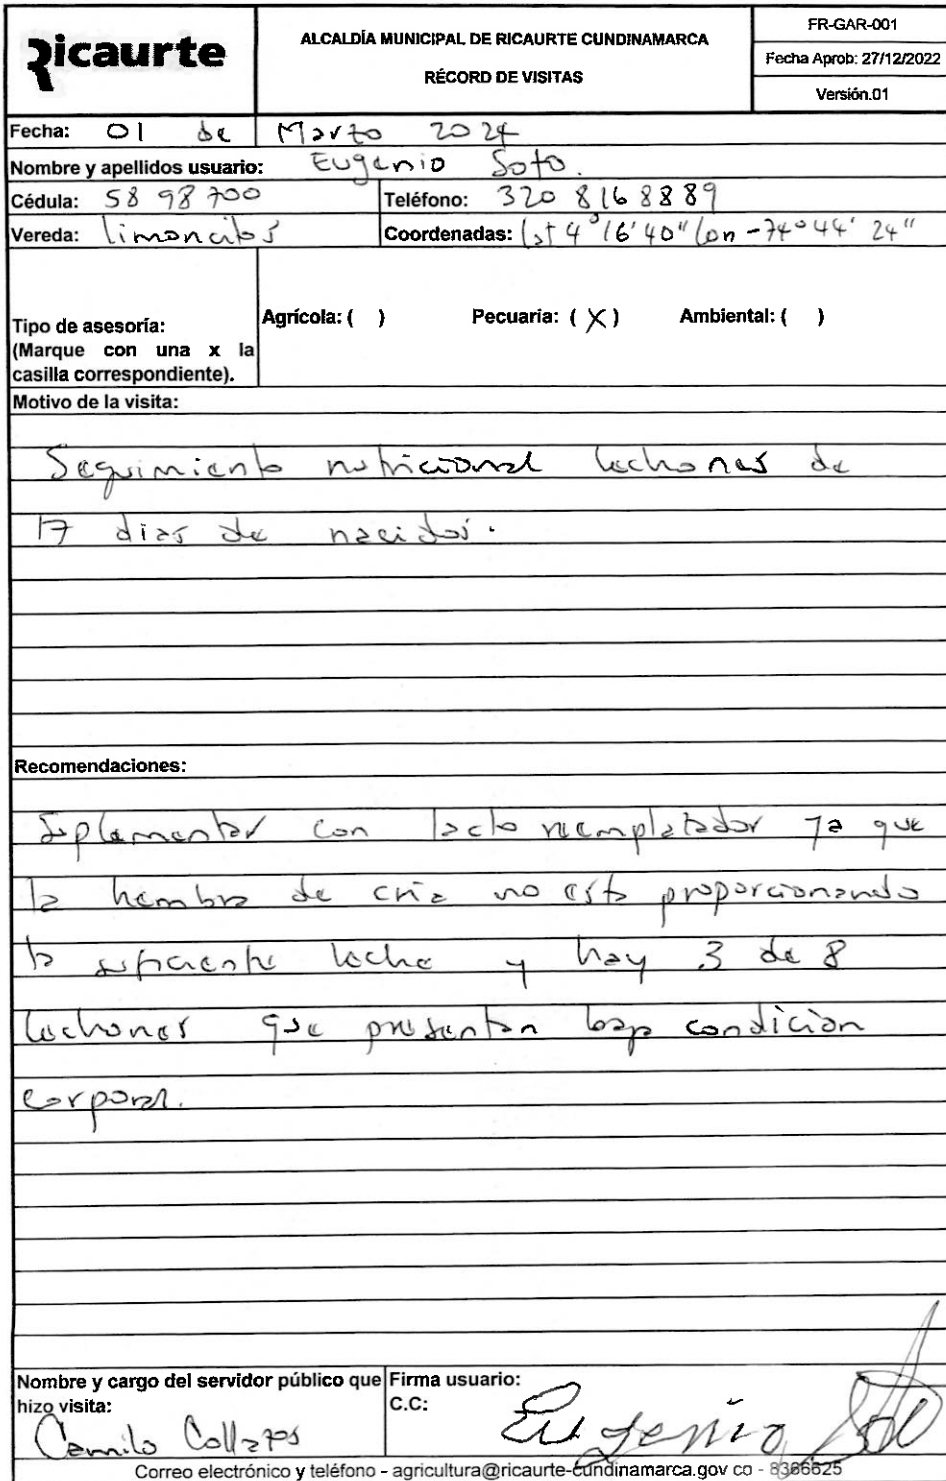 Ricaurte
ALCALDÍA MUNICIPAL DE RICAURTE CUNDINAMARCA
RÉCORD DE VISITAS
FR-GAR-001
Fecha Aprob: 27/12/2022
Versión.01
Fecha: 01 de Marzo 2024
Nombre y apellidos usuario: Eugenio Soto.
Cédula: 5898700 Teléfono: 320 8168889
Vereda: limoncitos Coordenadas: lat 4°16'40" lon -74°44' 24"
Tipo de asesoría:
(Marque con una x la
casilla correspondiente).
Agrícola: ( ) Pecuaria: (X) Ambiental: ( )
Motivo de la visita:
Seguimiento nutricional lechones de
17 dias de nacidos.
Recomendaciones:
Suplementar con lacto reemplazador ya que
la hembra de cria no esta proporcionando
la suficiente leche y hay 3 de 8
lechones que presentan baja condicion
corporal.
Nombre y cargo del servidor público que
hizo visita:
Camilo Collazos
Firma usuario:
C.C:
Eugenio Soto
Correo electrónico y teléfono - agricultura@ricaurte-cundinamarca.gov co - 8366625